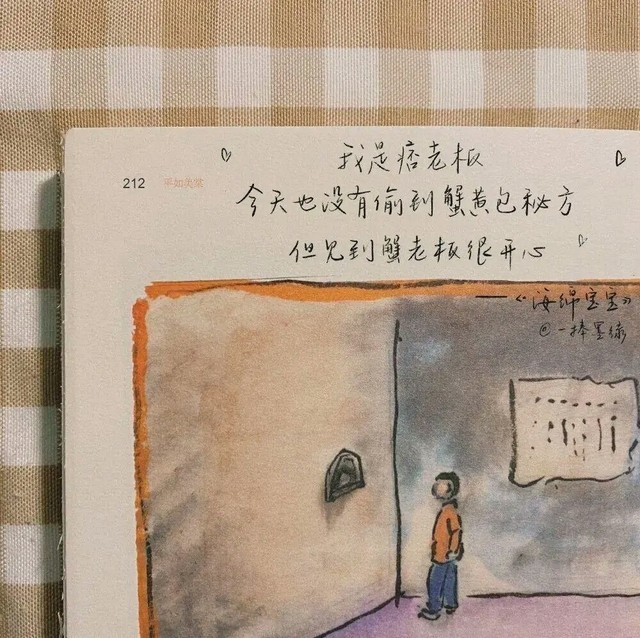 我是痞老板
212 平如美棠
今天也没有偷到蟹黄包秘方
但见到蟹老板很开心
——《海绵宝宝》
@一捧墨绿